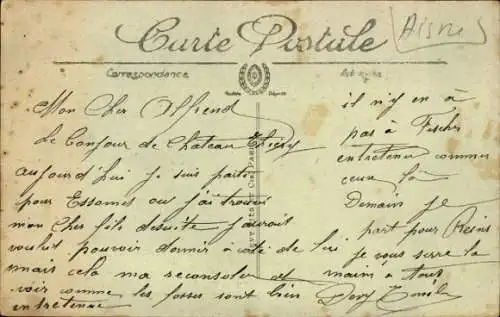 Aisne
Carte Postale
Correspondance
Mon Cher Alfred
Le Bonjour de Chateau Thierry
aujourd'hui je suis partie
pour Essomes ou j'ai trouvé
mon cher fils desuite j'aurait
voulut pouvoir dormir à côté de lui
mais cela ma reconsoler et
voir comme les fosses sont bien
entretenue
il n'y en à
pas à
entretenu comme
ceux là
Demain je
part pour Reims
je vous serre la
main à tous